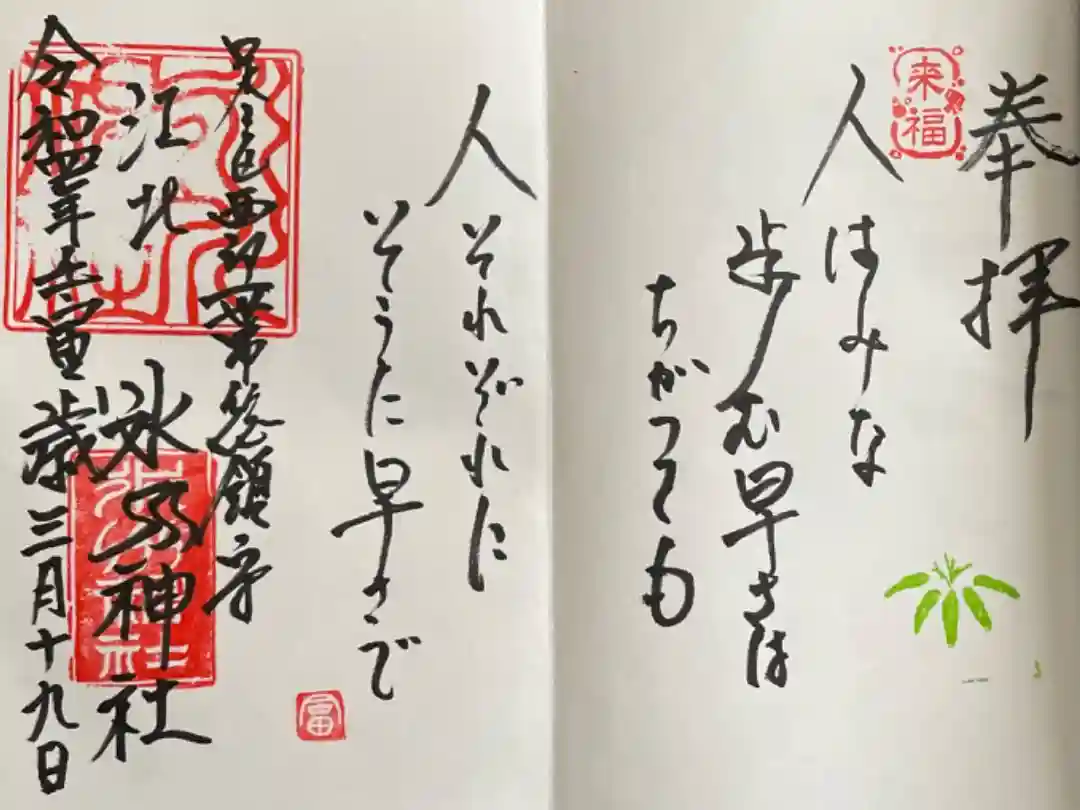 奉拝
来福
人はみな
歩む早さは
ちがつても
人それぞれに
早さで
富
足立区西部一帯総鎮守
江北氷川神社
令和四年壬寅歳三月十九日